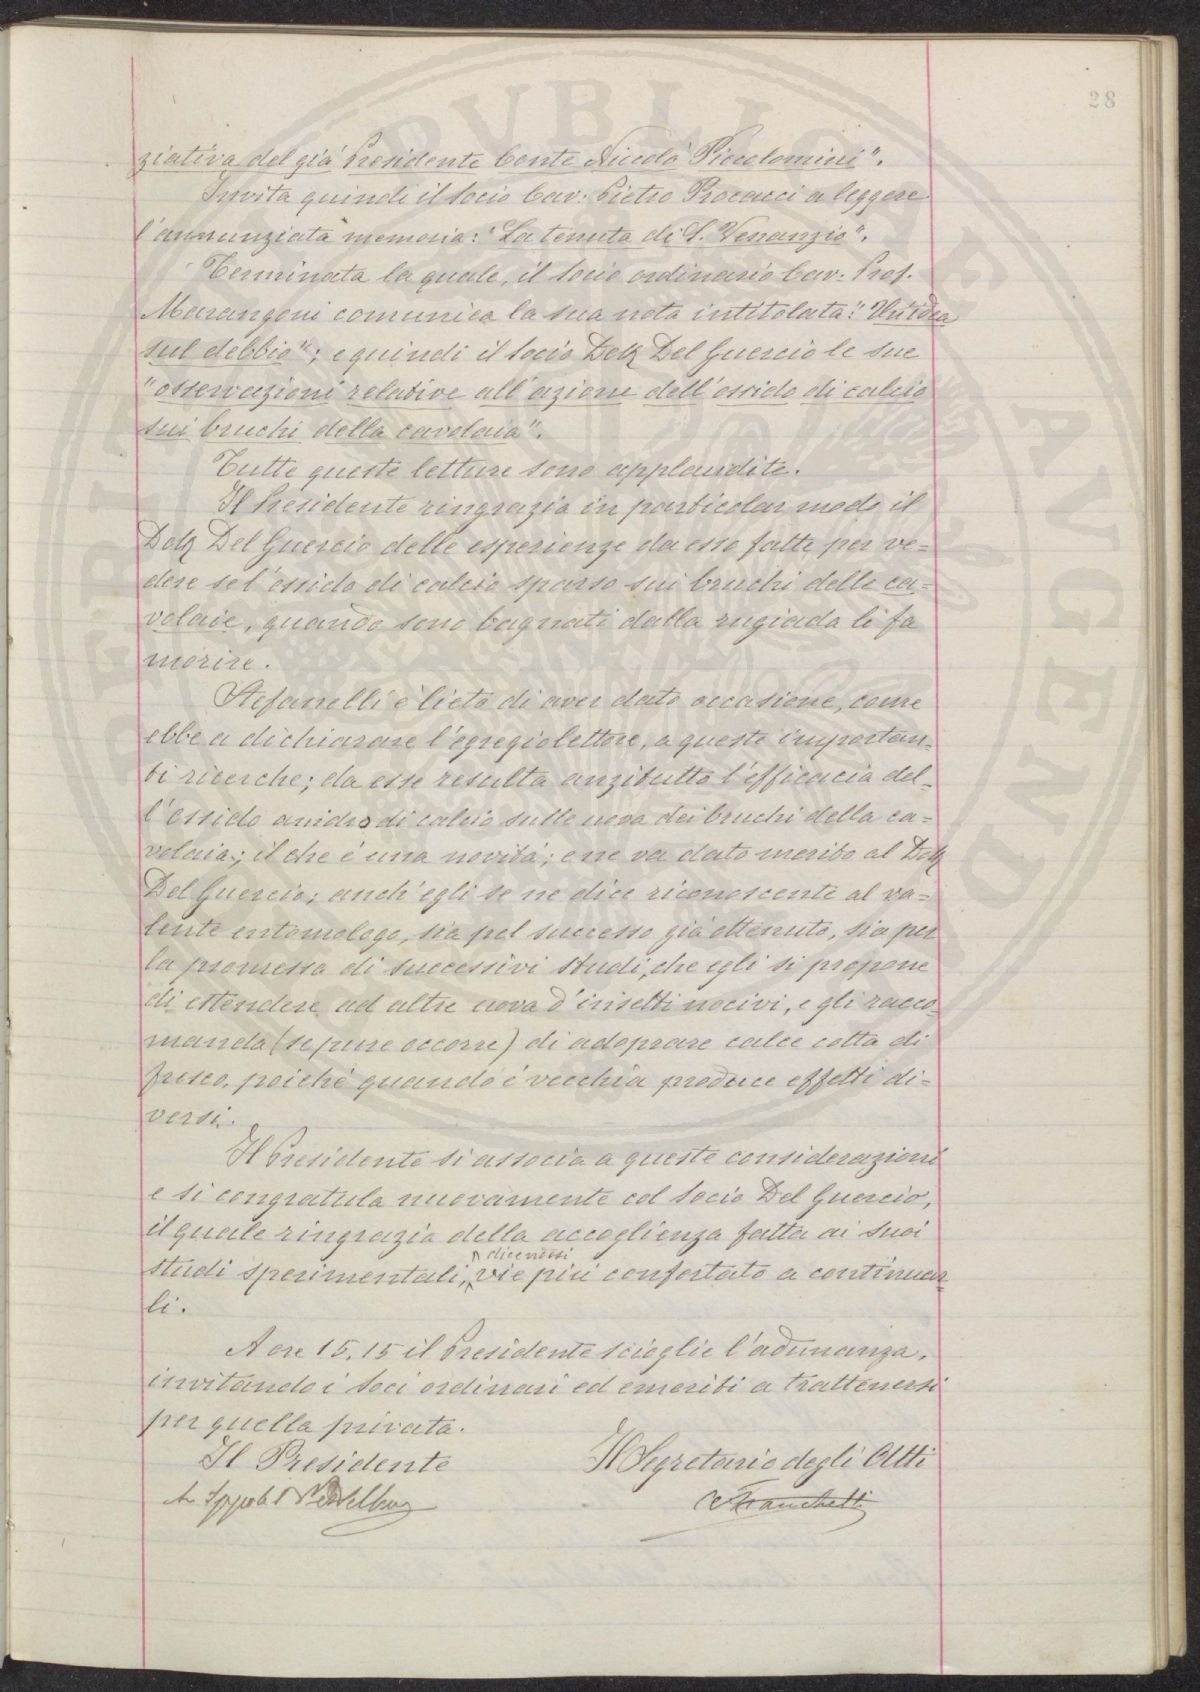 28
ziativa del già Presidente Conte Niccolò Piccolomini".
Invita quindi il Socio Cav. Pietro Procacci a leggere
l'annunziata memoria: "La tenuta di S. Venanzio".
Terminata la quale, il Socio ordinario Cav. Prof.
Marangoni comunica la sua nota intitolata: "Un'idea
sul debbio"; e quindi il Socio Dott. Del Guercio le sue
"osservazioni relative all'azione dell'ossido di calcio
sui bruchi della cavolaia".
Tutte queste letture sono applaudite.
Il Presidente ringrazia in particolar modo il
Dott. Del Guercio delle esperienze da esso fatte per ve=
dere se l'ossido di calcio sparso sui bruchi delle ca=
volaie, quando sono bagnati dalla rugiada li fa
morire.
Stefanelli è lieto di aver dato occasione, come
ebbe a dichiarare l'egregio lettore, a queste importan=
ti ricerche; da esse resulta anzitutto l'efficacia del=
l'ossido anidro di calcio sulle uova dei bruchi della ca=
volaia; il che è una novità; e ne va dato merito al Dott.
Del Guercio; anch'egli se ne dice riconoscente al va=
lente entomologo, sia pel successo già ottenuto, sia per
la promessa di successivi studi, che egli si propone
di estendere ad altre uova d'insetti nocivi, e gli racco=
manda (se pure occorre) di adoprare calce cotta di
fresco, poichè quando è vecchia produce effetti di=
versi.
Il Presidente si associa a queste considerazioni
e si congratula nuovamente col Socio Del Guercio,
il quale ringrazia della accoglienza fatta ai suoi
dicendosi
studi sperimentali, vie più confortato a continuar=
li.
A ore 15,15 il Presidente scioglie l'adunanza,
invitando i Soci ordinari ed emeriti a trattenersi
per quella privata.
Il Presidente Il Segretario degli Atti
Franchetti